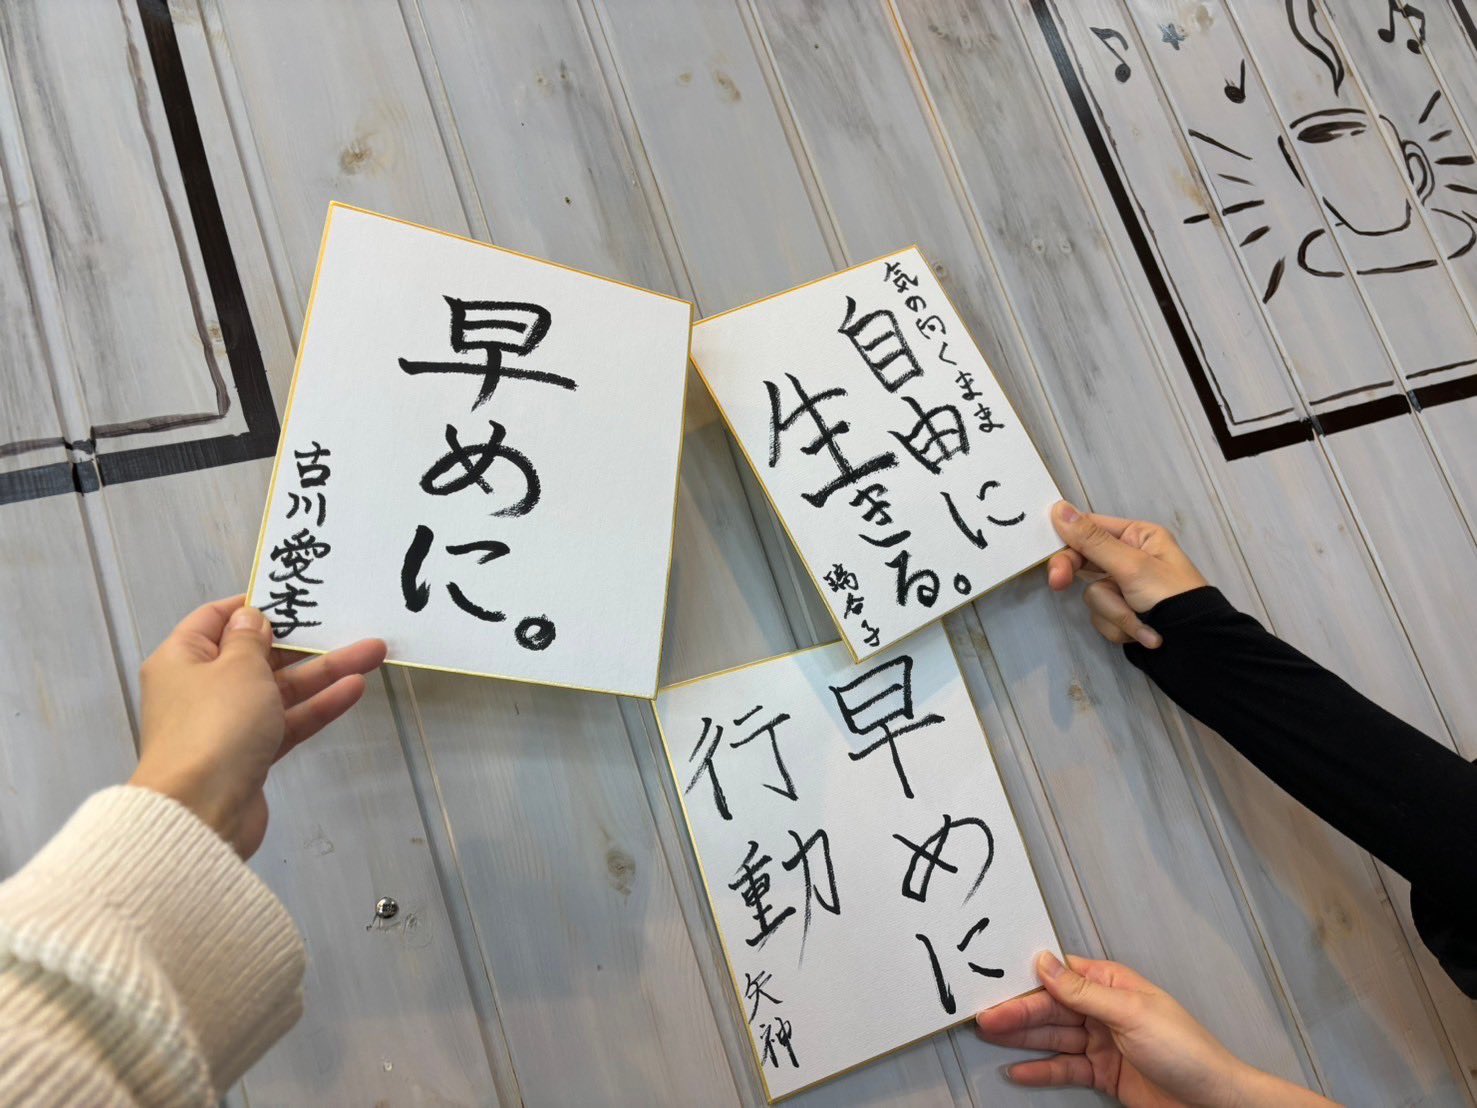 早めに。
古川愛李
気の向くまま
自由に
生きる。
璃谷子
早めに
行動
矢神